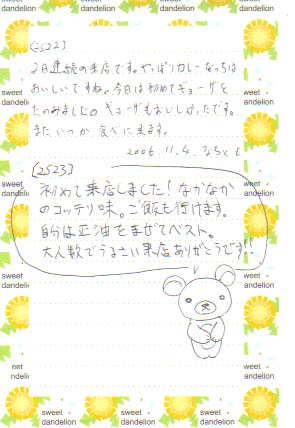 sweet dandelion sweet dandelion sweet dandelion
(2522)
2日連続の来店です。やっぱりカレーなっちは
おいしいですね。今日は初めてギョーザを
たのみました。ギョーザもおいしかったです。
またいつか食べに来ます。
2006.11.4.
(2523)
初めて来店しました!なかなか
のコッテリ味。ご飯も行けます。
自分は正油をまぜてベスト。
大人数でうるさい来店ありがとうです!!
sweet dandelion
sweet dandelion
sweet dandelion
sweet dandelion
sweet dandelion sweet dandelion sweet dandelion